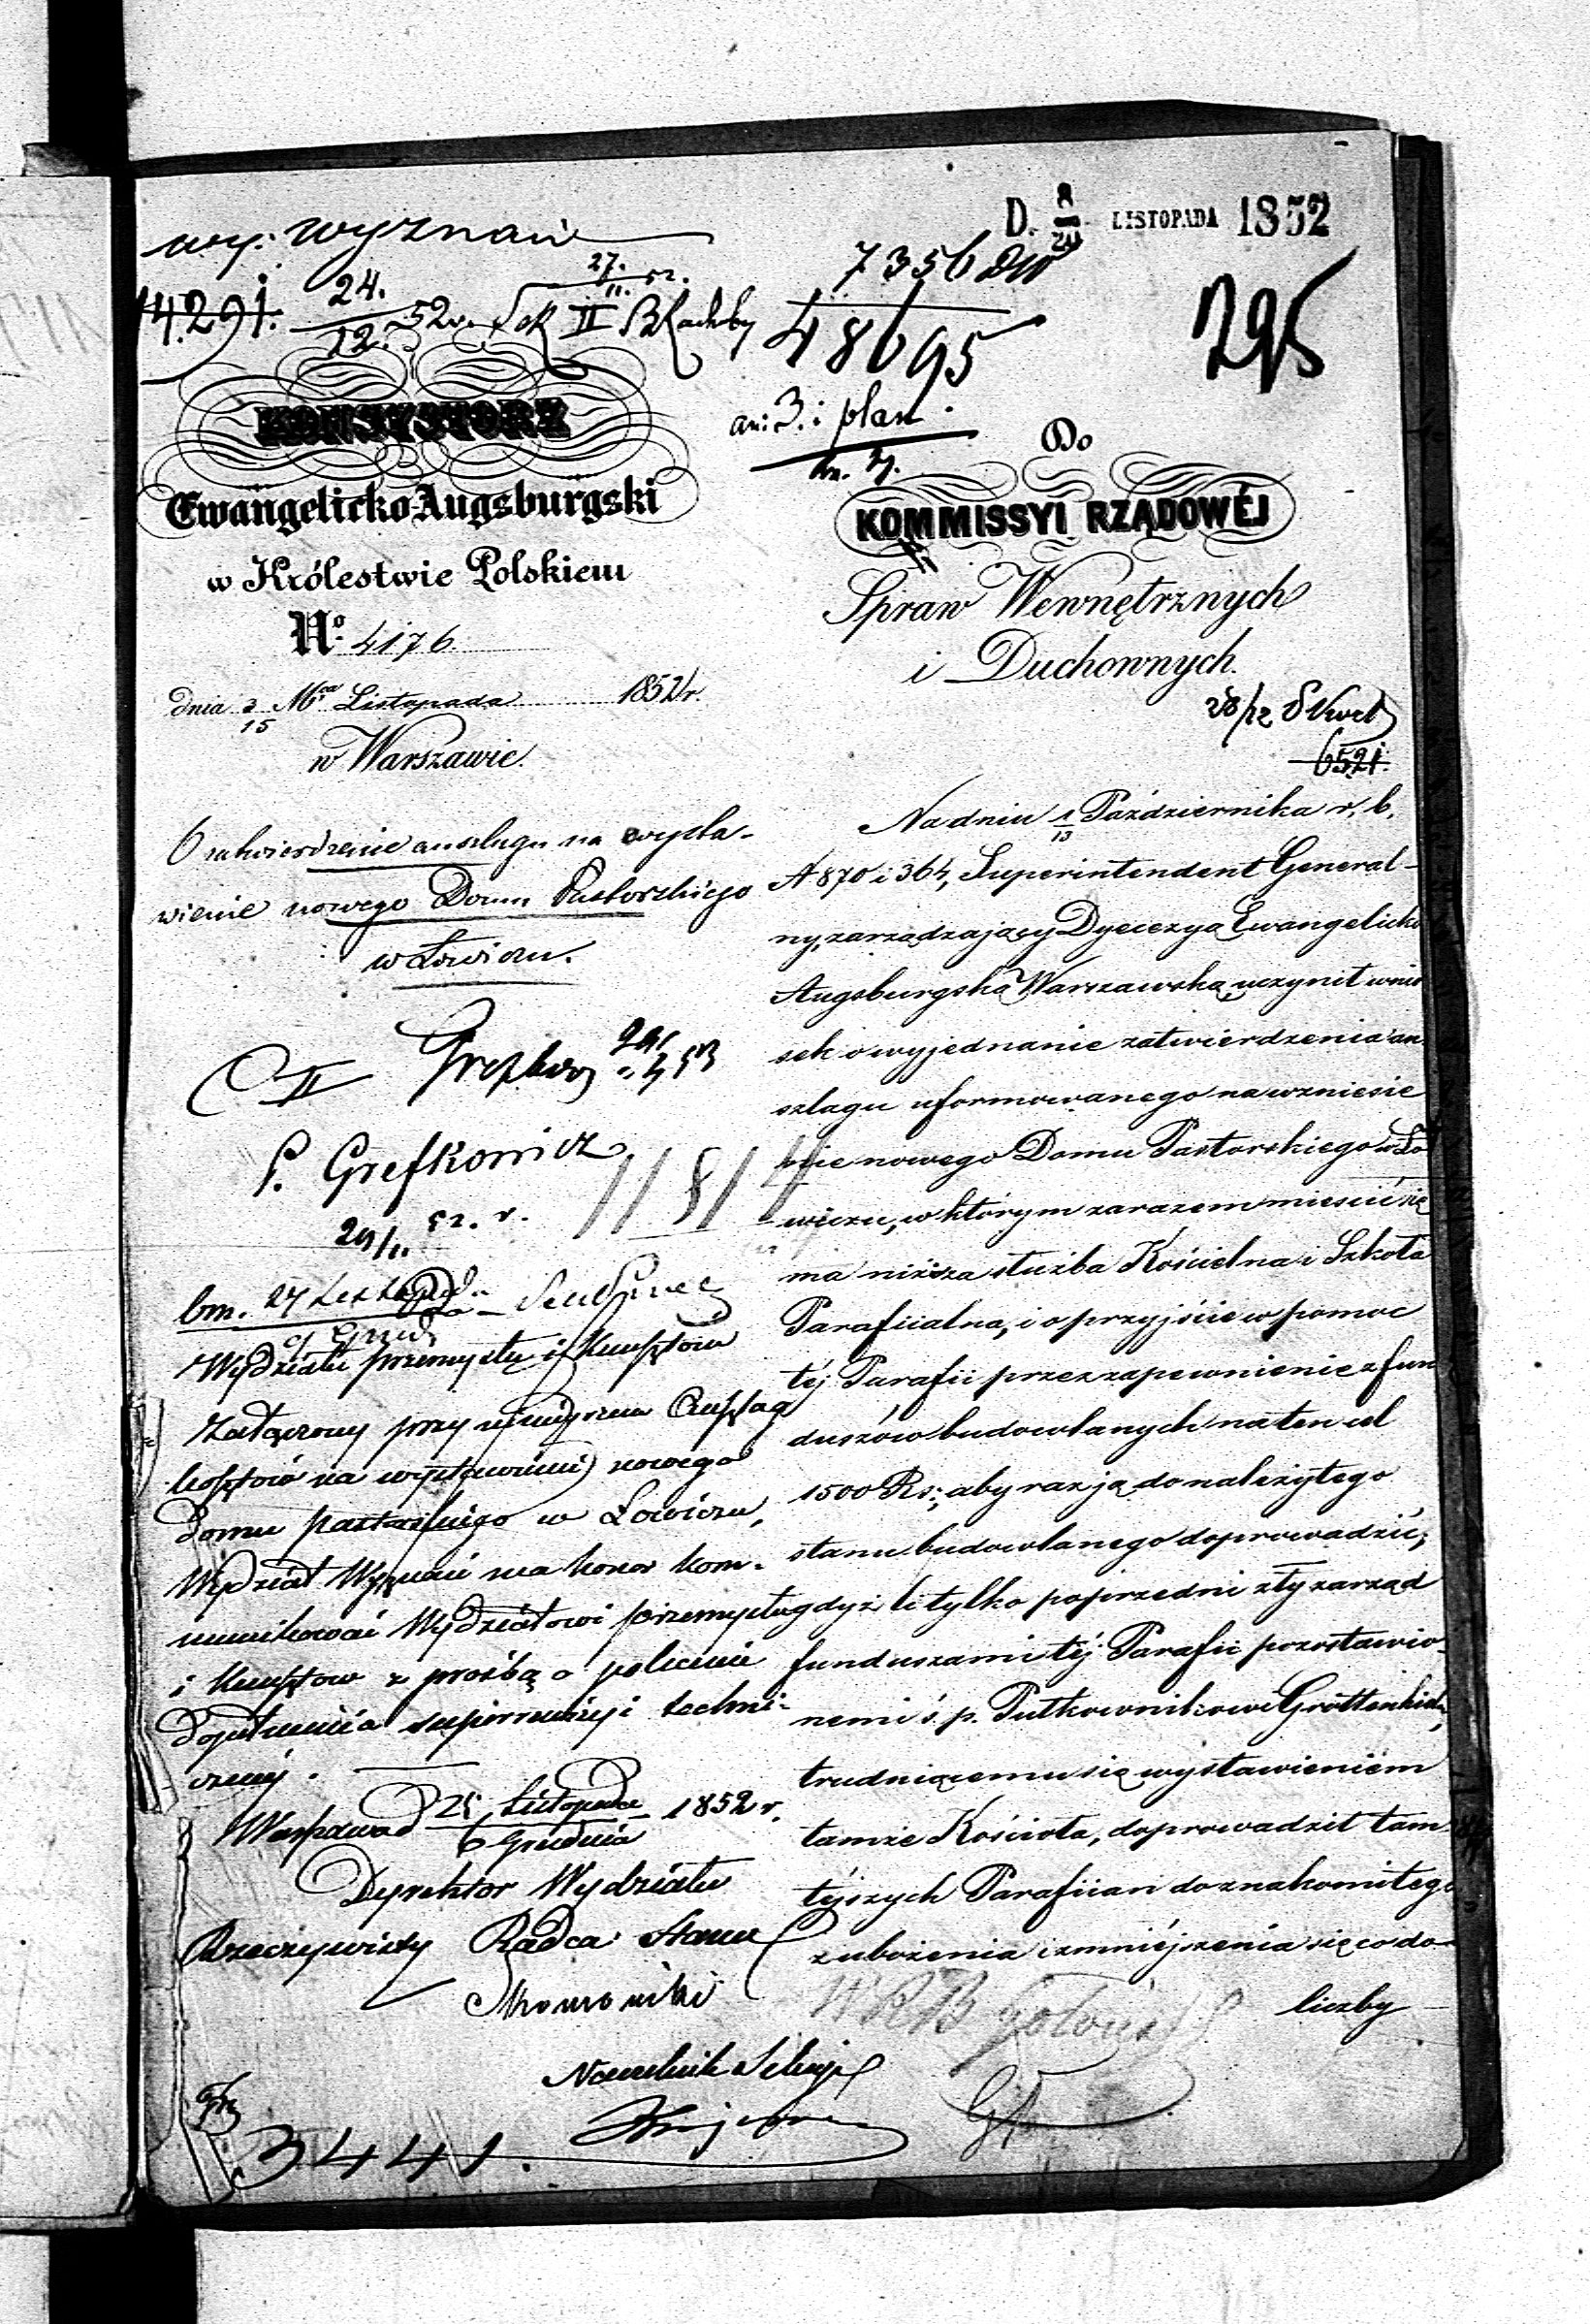 wy: Wyznań
D. 8/20 LISTOPADA 1852
7356 DW
14291. 24./12. 52 r. Sek II
27./11. 52.
48695
295
an: 3. i plan.
KONSYSTORZ
Ewangelicko-Augsburgski
w Królestwie Polskiem
No. 4176.
dnia 3/15 Mca Listopada 1852 r.
w Warszawie.
O zatwierdzenie anszlagu na wysta-
wienie nowego Domu Pastorskiego
w Łowiczu.
II
P. Grefkowicz
29/11 52. r.
11814
Wydziału przemysłu i Kunsztów
Załączony przy niniejszem Anszlag
kosztów na wystawienie nowego
domu pastorskiego w Łowiczu,
Wydział Wyznań ma honor kom-
munikować Wydziałowi przemysłu
i Kunsztów z prośbą o polecenie
dopełnienia superrewizyi techni-
cznej.
Warszawa d 25 Listopada / 6 Grudnia 1852 r.
Dyrektor Wydziału
Rzeczywisty Radca Stanu
Naczelnik Sekcyi
3441.
Do
KOMMISSYI RZĄDOWÉJ
Spraw Wewnętrznych
i Duchownych.
6521.
Na dniu 1/13 Października r. b.
N 870 i 364, Superintendent General-
ny, zarządzający Dyecezyą Ewangelicko
Augsburgską Warszawską uczynił wnio
sek o wyjednanie zatwierdzenia an
szlagu uformowanego na wzniesie
nie nowego Domu Pastorskiego w Ło
wiczu, w którym zarazem mieścić się
ma niższa służba Kościelna i Szkoła
Parafiialna, i o przyjście w pomoc
téj Parafii przez zapewnienie z fun
duszów budowlanych na ten cel
1500 Rs; aby raz ją do należytego
stanu budowlanego doprowadzić;
gdyż li tylko poprzedni zły zarząd
funduszami téj Parafii pozostawio-
nemi ś. p. Pułkownikowi
trudniącemu się wystawieniem
tamże Kościoła, doprowadził tam-
téjszych Parafiian do znakomitego
zubożenia i zmniéjszenia się co do
liczby